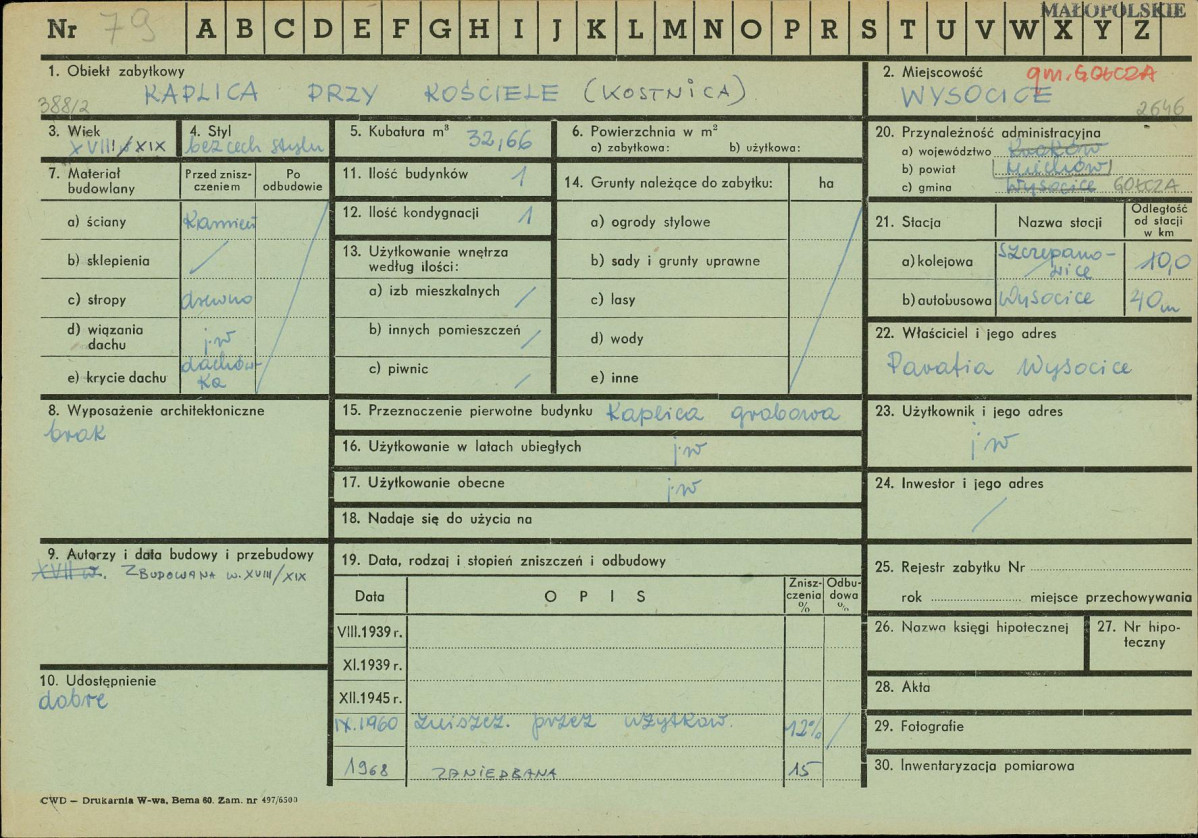 MAŁOPOLSKIE
Nr 79 A B C D E F G H I J K L M N O P R S T U V W X Y Z
1. Obiekt zabytkowy
388/2 KAPLICA PRZY KOŚCIELE (KOSTNICA)
2. Miejscowość gm. GOŁCZA
WYSOCICE
2646
3. Wiek
XVIII/XIX
4. Styl
bez cech stylu
5. Kubatura m³ 32,66
6. Powierzchnia w m²
a) zabytkowa: b) użytkowa:
7. Materiał budowlany
Przed zniszczeniem
Po odbudowie
a) ściany kamień
b) sklepienia /
c) stropy drewno
d) wiązania dachu j.w
e) krycie dachu dachówka
8. Wyposażenie architektoniczne
brak
9. Autorzy i data budowy i przebudowy
XVII w. ZBUDOWANA W. XVIII/XIX
10. Udostępnienie
dobre
11. Ilość budynków 1
12. Ilość kondygnacji 1
13. Użytkowanie wnętrza
według ilości:
a) izb mieszkalnych /
b) innych pomieszczeń /
c) piwnic /
14. Grunty należące do zabytku: ha
a) ogrody stylowe
b) sady i grunty uprawne
c) lasy
d) wody
e) inne
15. Przeznaczenie pierwotne budynku Kaplica grobowa
16. Użytkowanie w latach ubiegłych j.w
17. Użytkowanie obecne j.w
18. Nadaje się do użycia na
19. Data, rodzaj i stopień zniszczeń i odbudowy
Data OPIS Zniszczenia % Odbudowa %
VIII.1939 r.
XI.1939 r.
XII.1945 r.
IX.1960 zniszcz. przez użytkow. 12% /
1968 ZANIEDBANA 15
20. Przynależność administracyjna
a) województwo Kraków
b) powiat Miechów
c) gmina Wysocice GOŁCZA
21. Stacja Nazwa stacji Odległość od stacji w km
a) kolejowa Szczepanowice 10,0
b) autobusowa Wysocice 40m
22. Właściciel i jego adres
Parafia Wysocice
23. Użytkownik i jego adres
j.w
24. Inwestor i jego adres
/
25. Rejestr zabytku Nr
rok miejsce przechowywania
26. Nazwa księgi hipotecznej
27. Nr hipoteczny
28. Akta
29. Fotografie
30. Inwentaryzacja pomiarowa
CWD – Drukarnia W-wa, Bema 60. Zam. nr 497/6500